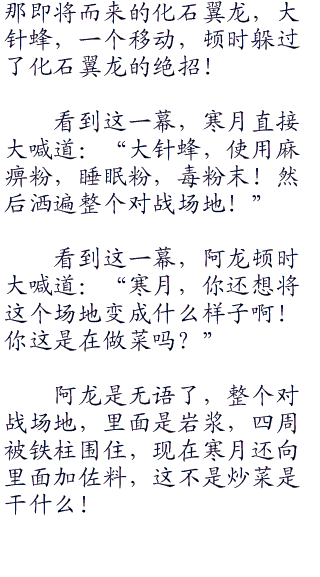 那即将而来的化石翼龙，大
针蜂，一个移动，顿时躲过
了化石翼龙的绝招！
看到这一幕，寒月直接
大喊道：“大针蜂，使用麻
痹粉，睡眠粉，毒粉末！然
后洒遍整个对战场地！”
看到这一幕，阿龙顿时
大喊道：“寒月，你还想将
这个场地变成什么样子啊！
你这是在做菜吗？”
阿龙是无语了，整个对
战场地，里面是岩浆，四周
被铁柱围住，现在寒月还向
里面加佐料，这不是炒菜是
干什么！